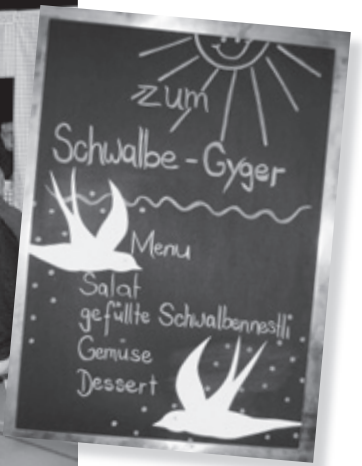 zum
Schwalbe-Gyger
Menu
Salat
gefüllte Schwalbennestli
Gemüse
Dessert